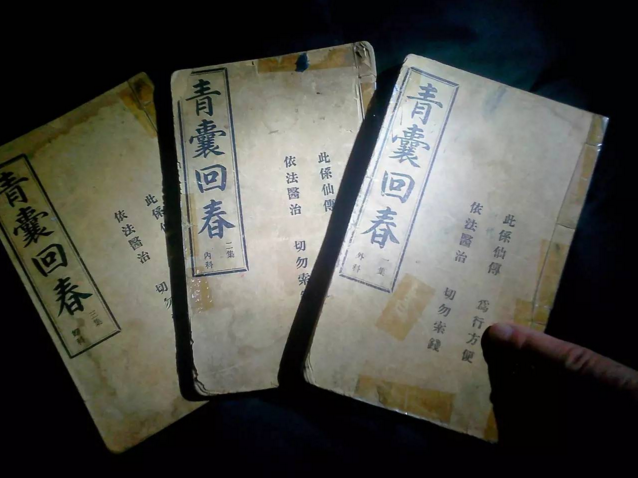 此係仙傳 為行方便
依法醫治 切勿索錢
青囊回春
一集
外科
此係仙傳
依法醫治 切勿索
青囊回春
二集
內科
此係仙
依法醫治 切勿
青囊回春
三集